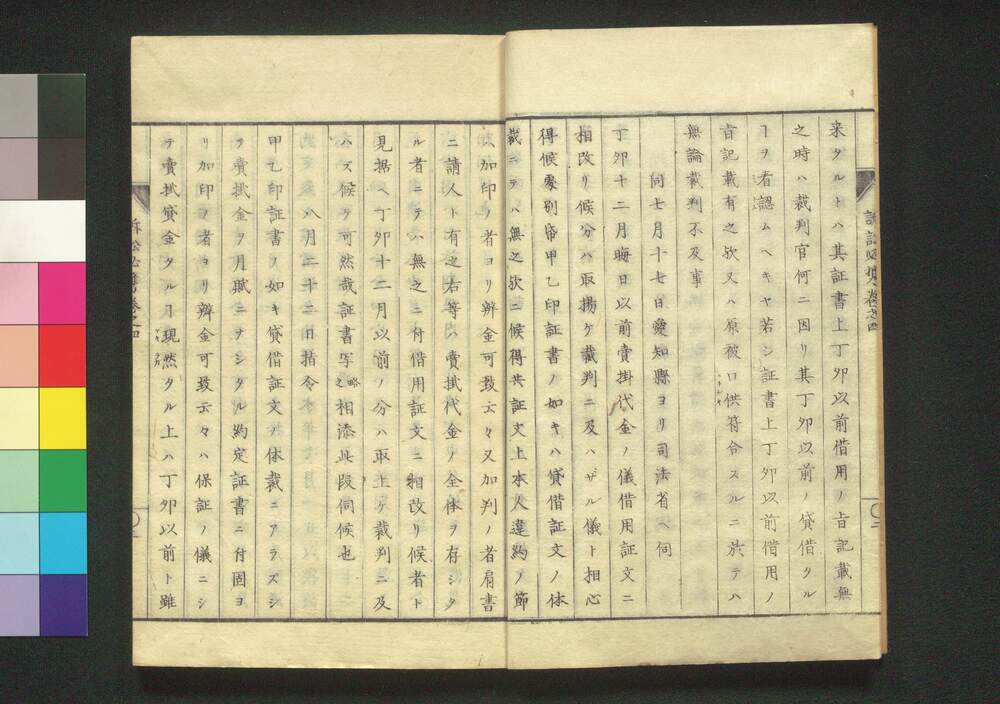 来タルトハ其証書上丁卯以前借用ノ旨記載無
之時ハ裁判官何ニ因リ其丁卯以前ノ貸借タル
ヿヲ者認ムヘキヤ若シ証書上丁卯以前借用ノ
旨記載有之欤又ハ原被口供符合スルニ於テハ
無論裁判不及事
同七月十七日愛知縣ヨリ司法省ヘ伺
丁卯十二月晦日以前賣掛代金ノ儀借用証文ニ
相改リ候分ハ取揚ケ裁判ニ及ハザル儀ト相心
得候處別帋甲乙印証書ノ如キハ貸借証文ノ体
裁ニテハ無之欤ニ候得共証文上本人違約ノ節
ハ加印ノ者ヨリ辨金可致云々又加判ノ者肩書
ニ請人ト有之右等ハ賣掛代金ノ全体ヲ存シタ
ル者ニテハ無之ニ付借用証文ニ相改リ候者ト
見据ヘ丁卯十二月以前ノ分ハ取上ケ裁判ニ及
ハズ候テ可然哉証書写略之相添此段伺候也
八月二十二日指令
甲乙印証書ノ如キ貸借証文ノ体裁ニアラズシ
テ賣掛金ヲ月賦ニナシタル約定証書ニ付固ヨ
リ加印ノ者ヨリ辨金可致云々ハ保証ノ儀ニシ
テ賣掛貸金タルヿ現然タル上ハ丁卯以前ト雖
訴訟必携巻之四